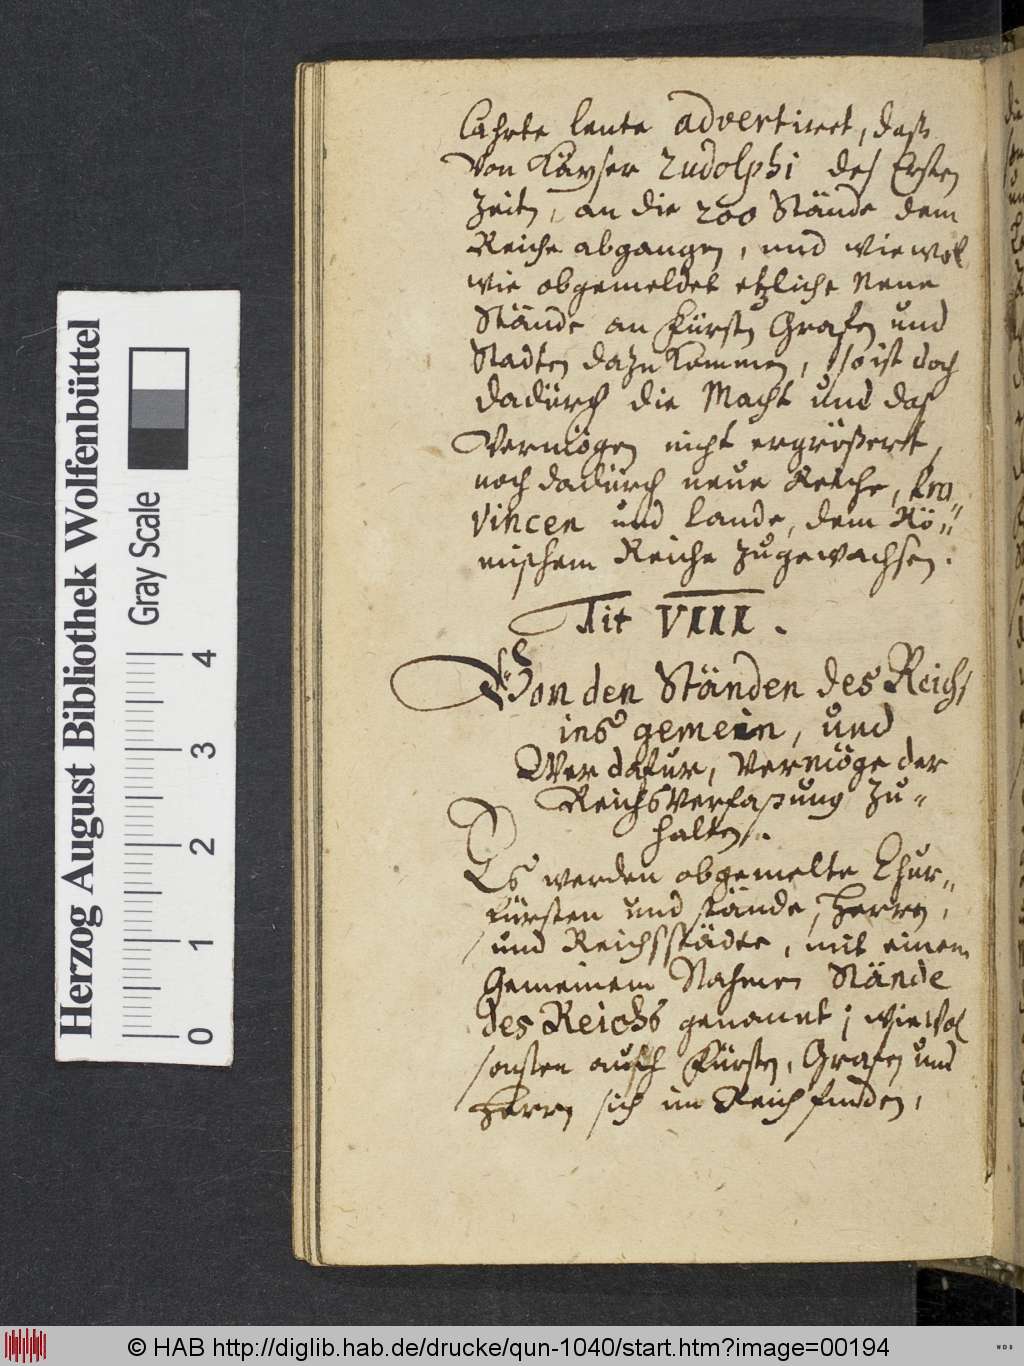 lahrte leute advertiret, daß
von Kayser Rudolphi des Ersten
Zeiten, an die 200 Stände dem
Reiche abgangen, und wiewol
wie obgemeldet etzliche Neue
Stände an Fürsten Grafen und
Stadten dazu kommen, so ist doch
dadurch die Macht und das
Vermögen nicht ergrößert,
noch dadurch neue Reiche, Pro„
vincen und Lande, dem Rö„
mischem Reiche zugewachsen.
Tit VIII.
Von den Ständen des Reichs
ins gemein, und
Wer dafur, vermöge der
Reichsverfaßung zu„
halten.
Es werden obgemelte Chur„
fürsten und stände, Herren,
und Reichsstädte, mit einem
Gemeinem Nahmen Stände
des Reichs genannt; wiewol
sonsten auch Fürsten, Grafen und
Herren sich im Reich finden,
Herzog August Bibliothek Wolfenbüttel
Gray Scale
0 1 2 3 4
© HAB http://diglib.hab.de/drucke/qun-1040/start.htm?image=00194